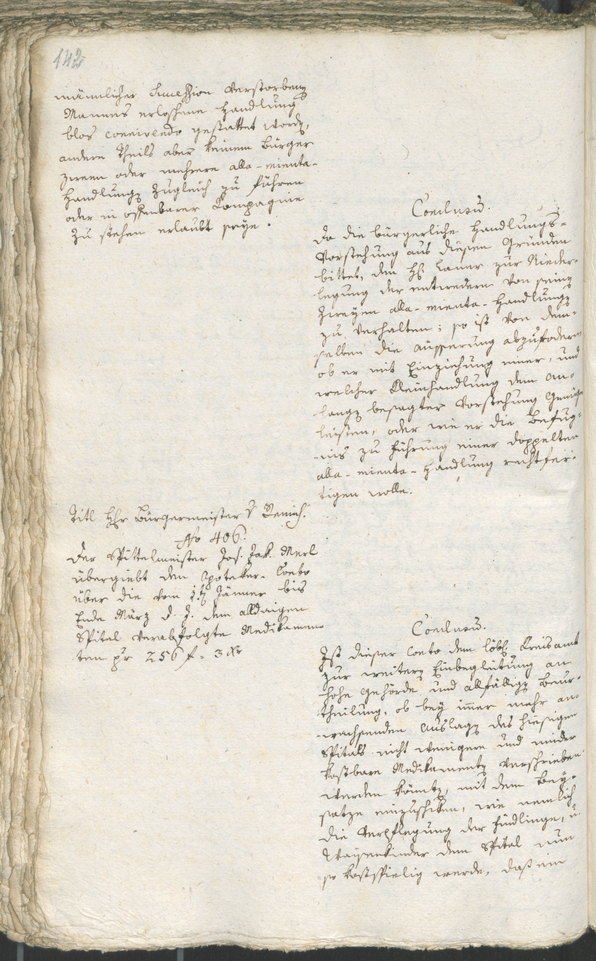 142
männlicher Succession verstorbenen
Mannes erloschene Handlung
blos connivendo gestattet worden,
andern Theils aber keinem Bürger
zween oder mehrere alla-minuta-
Handlungen zugleich zu führen
oder in offenbarer Compagnie
zu stehen erlaubt seye.
Conclusum:
Da die bürgerliche Handlungs-
Vorstehung aus diesen Gründen
bittet, den H: zur Nieder-
legung der entweders von seinen
zweyen alla-minuta-Handlungen
zu verhalten; so ist von dem-
selben die äusserung abzufodern
ob er mit Einziehung einer, und
welcher Kleinhandlung dem an-
langen besagter Vorstehung Genüge
leisten, oder wie er die Befug-
nis zu führung einer doppelten
alla-minuta-Handlung rechtfer-
tigen wolle.
Titl Hr Bürgermeister
No 406.
Der Spittelmeister Jos. Jak. Merl
übergiebt den Apoteker-Conto
über die vom 1ten Jänner bis
Ende März d. J. dem alldaigen
Spital verabfolgte Medikamen-
ten pr 256 f. 3 Xr
Conclusum:
Ist dieser Conto dem löbl. Kreisamt
zur weitern Einbegleitung an
hohe Behörde und allfälliger Beur-
theilung, ob bey immer mehr an-
wachsenden Auslagen des hiesigen
Spitals nicht wenigere und minder
kostbare Medikamenten verschrieben
werden könnten, mit dem Bey-
satze einzuschiken, wie nemlich
die Verpflegung der Findlinge, u:
Waysenkinder dem Spital nun
so kostspielig werde, daß ein